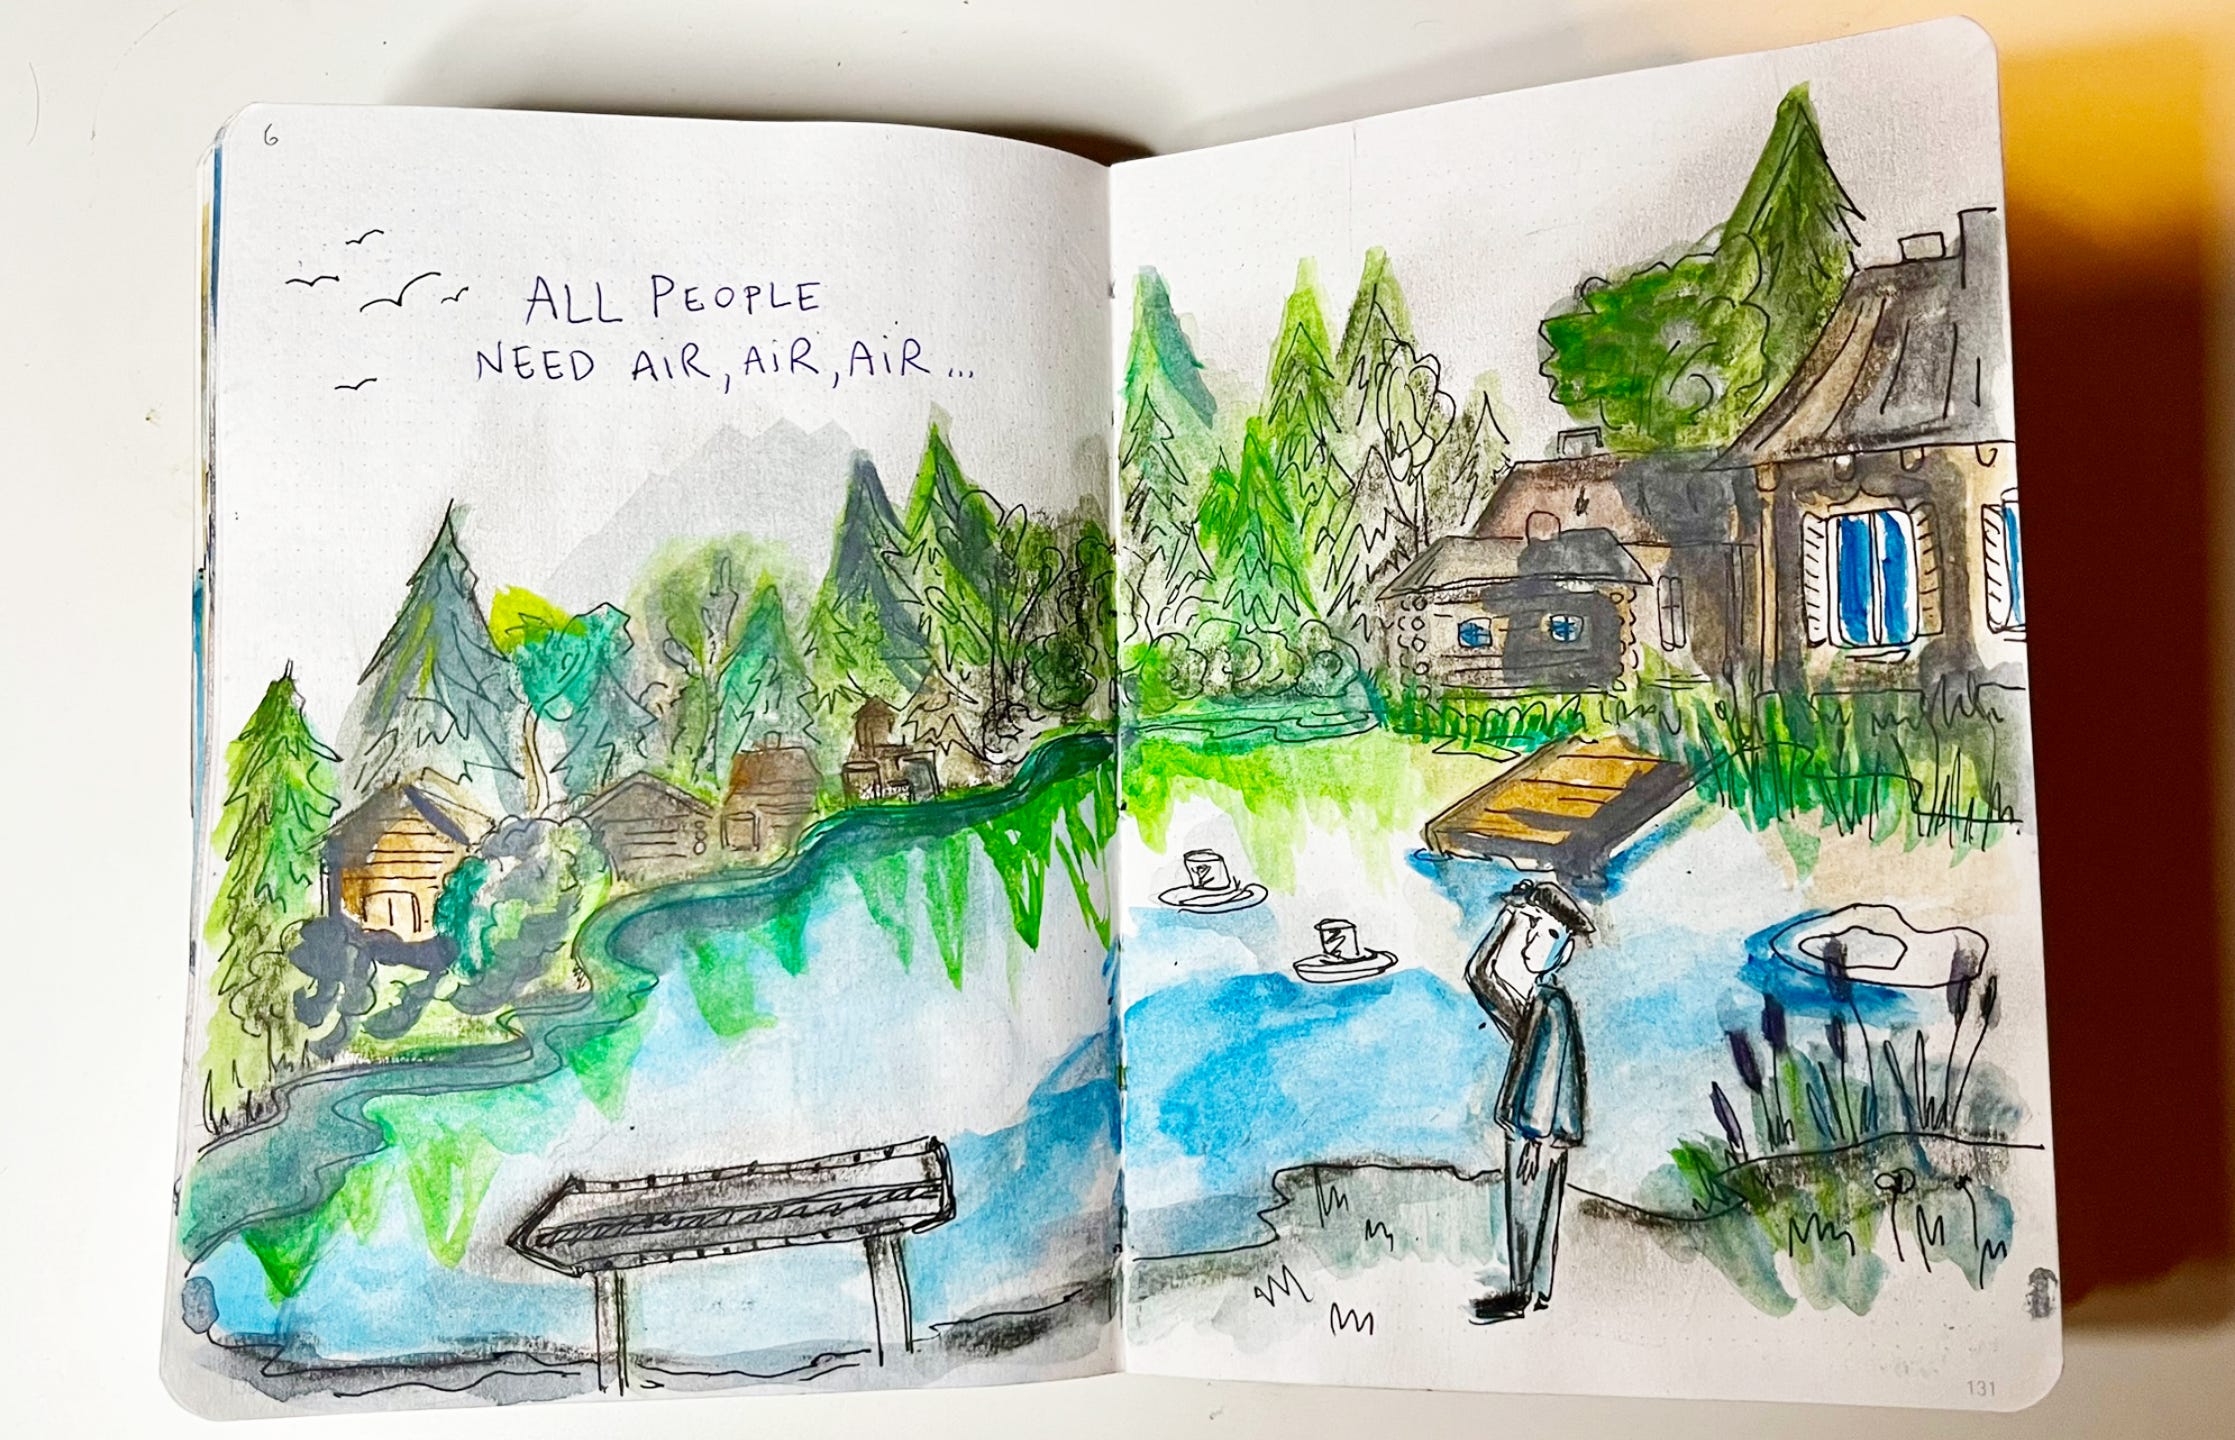 6
ALL PEOPLE
NEED AIR, AIR, AIR...
131